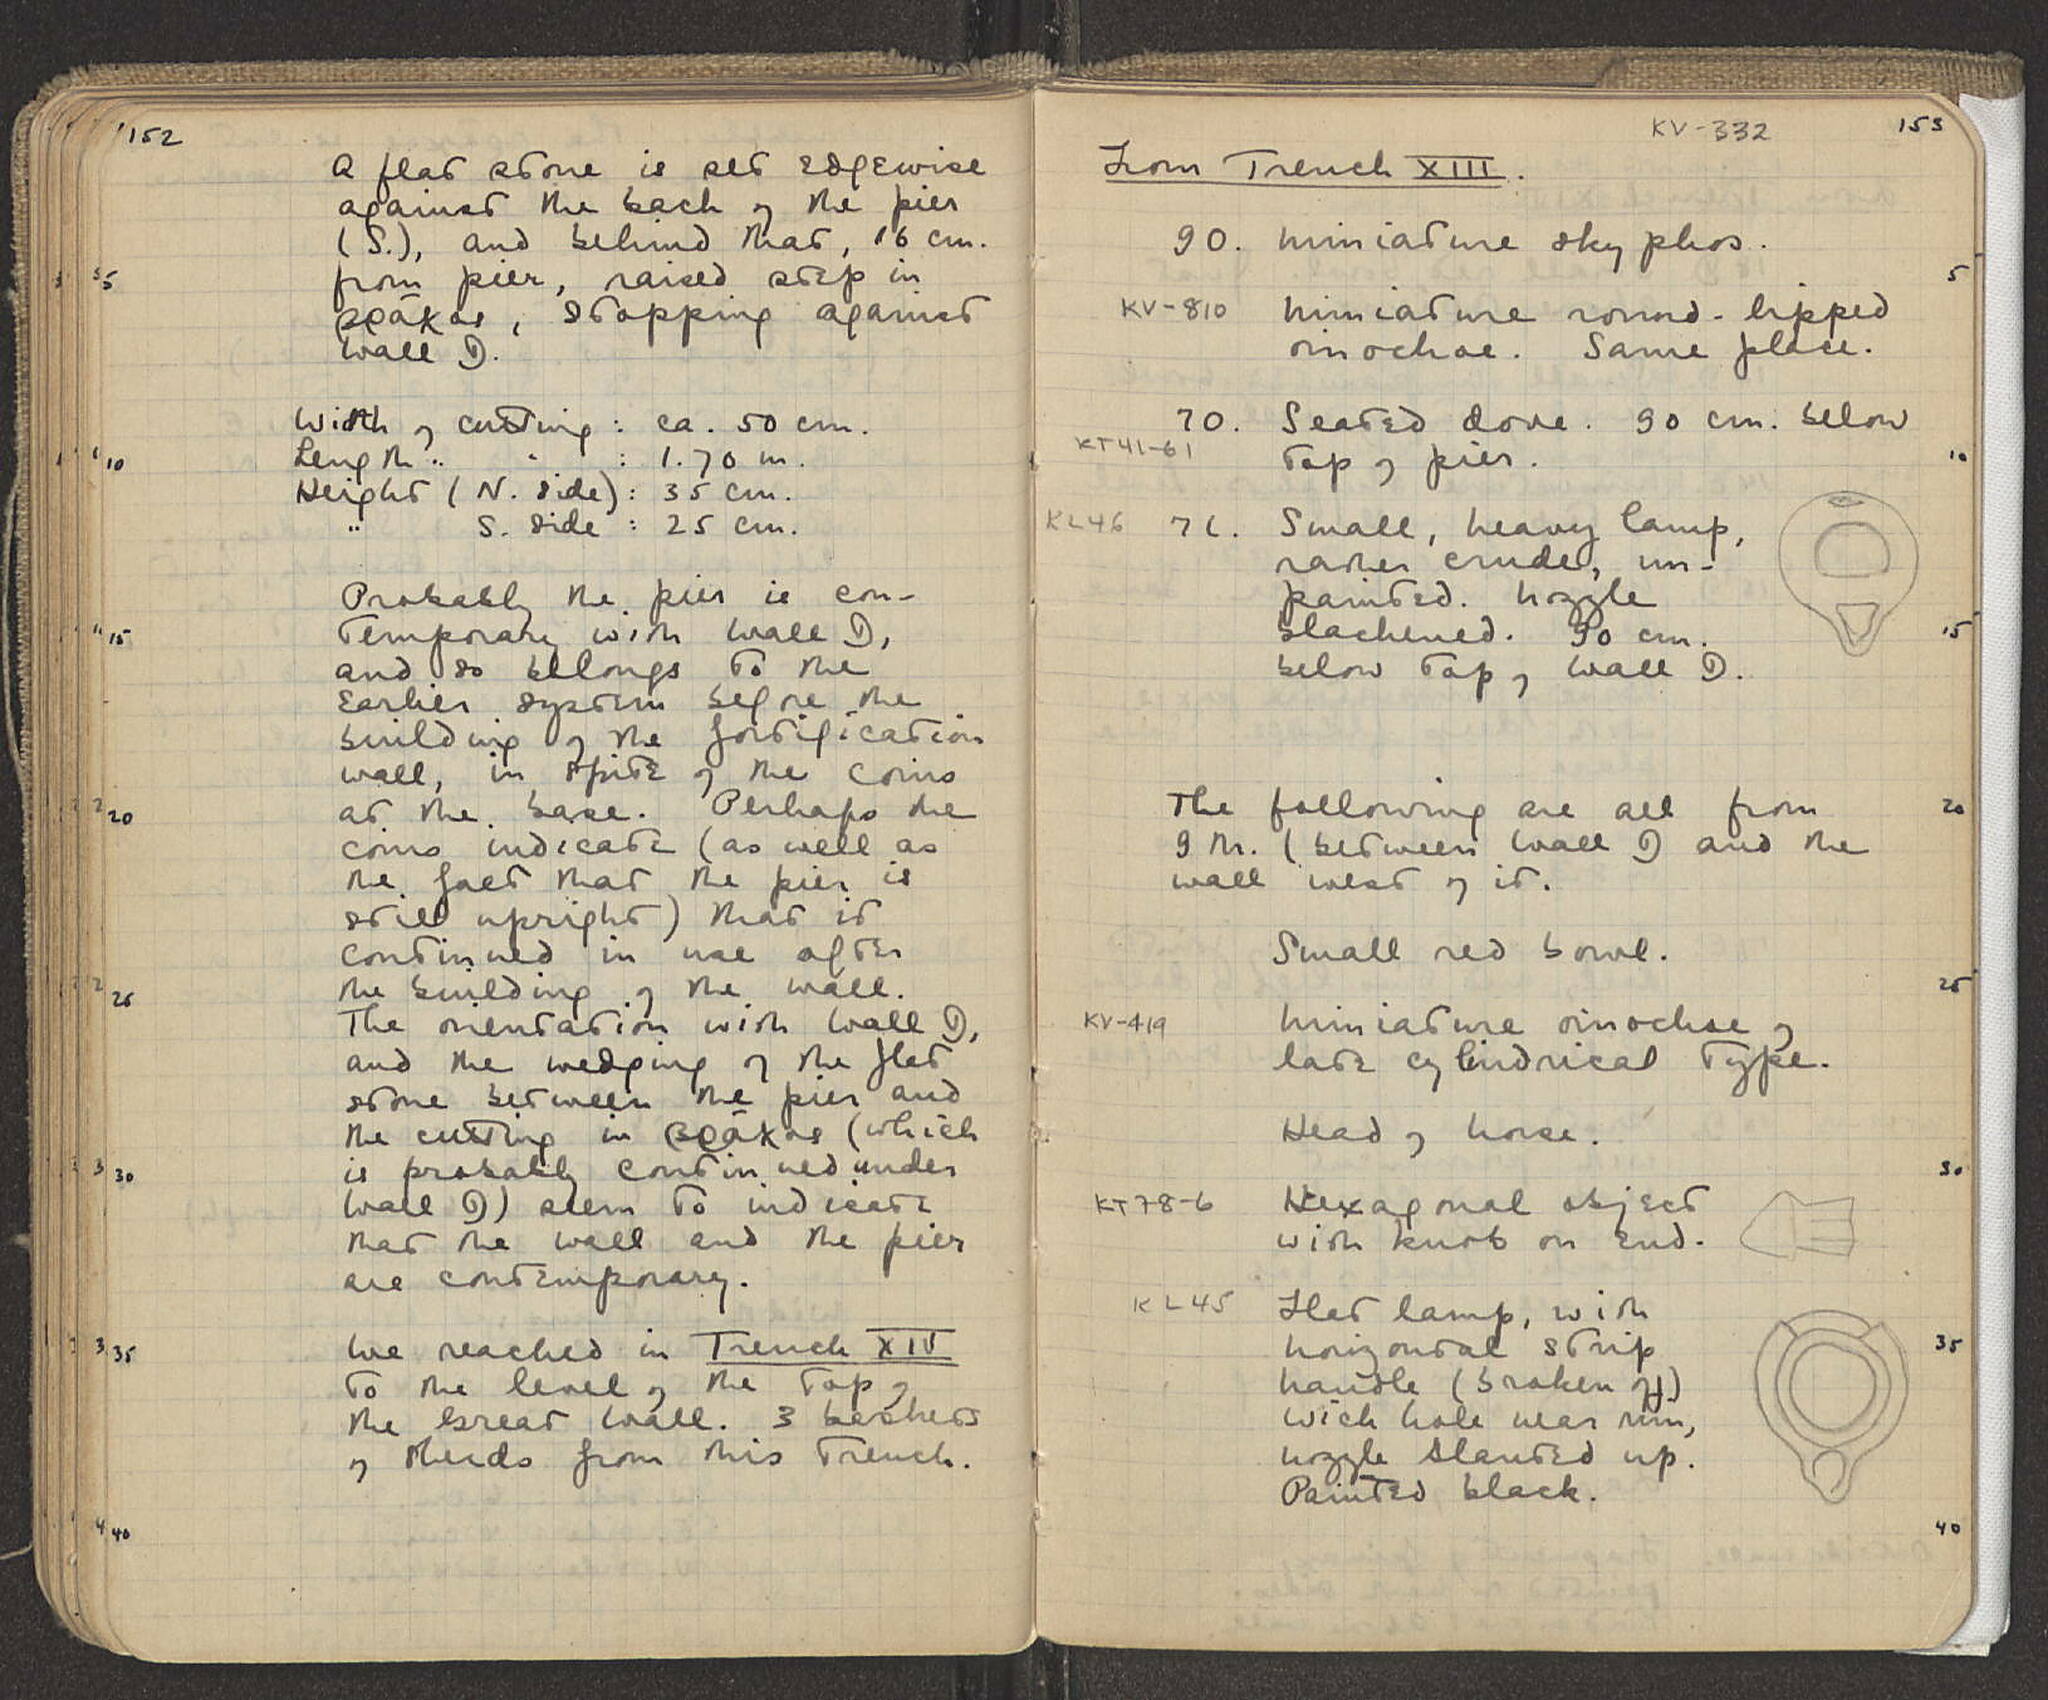 152
A flat stone is set edgewise
against the back of the pier
(S.), and behind that, 16 cm.
from pier, raised step in
βράχος, stopping against
Wall D.
Width of cutting : ca. 50 cm.
Length " " : 1.70 m.
Height (N. side) : 35 cm.
" S. side : 25 cm.
Probably the pier is con-
temporary with Wall D,
and so belongs to the
earlier system before the
building of the fortification
wall, in spite of the coins
at the base. Perhaps the
coins indicate (as well as
the fact that the pier is
still upright) that it
continued in use after
the building of the wall.
The orientation with Wall D,
and the wedging of the flat
stone between the pier and
the cutting in βράχος (which
is probably continued under
Wall D) seem to indicate
that the wall and the pier
are contemporary.
We reached in Trench XIV
to the level of the top of
the Great Wall. 3 baskets
of sherds from this trench.
5
10
15
20
25
30
35
40
KV-332 153
From Trench XIII.
90. Miniature skyphos.
KV-810 Miniature round-lipped
oinochoe. Same place.
70. Seated dove. 90 cm. below
KT41-61 top of pier.
KL46 71. Small, heavy lamp,
rather crude, un-
painted. Nozzle
blackened. 90 cm.
below top of Wall D.
The following are all from
9 M. (between Wall D and the
wall west of it.
Small red bowl.
KV-419 Miniature oinochoe of
late cylindrical type.
Head of horse.
KT78-6 Hexagonal object
with knob on end.
KL45 Flat lamp, with
horizontal strip
handle (broken off)
wick hole near rim,
nozzle slanted up.
Painted black.
5
10
15
20
25
30
35
40